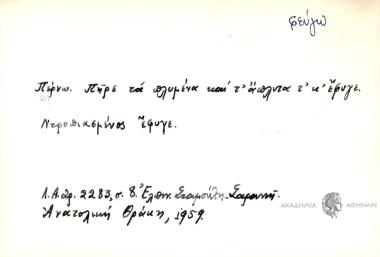 φεύγω
Παίρνω. Πῆρε τά πλυμένα καί τ' ἄπλυτα τ' κ' ἔφυγε.
Ντροπιασμένος ἔφυγε.
Λ.Α. ἀρ. 2283, σ. 8. Ἐλπιν. Σταμούλη-Σαραντῆ
Ἀνατολική Θράκη, 1959.
ΑΚΑΔΗΜΙΑ ΑΘΗΝΩΝ